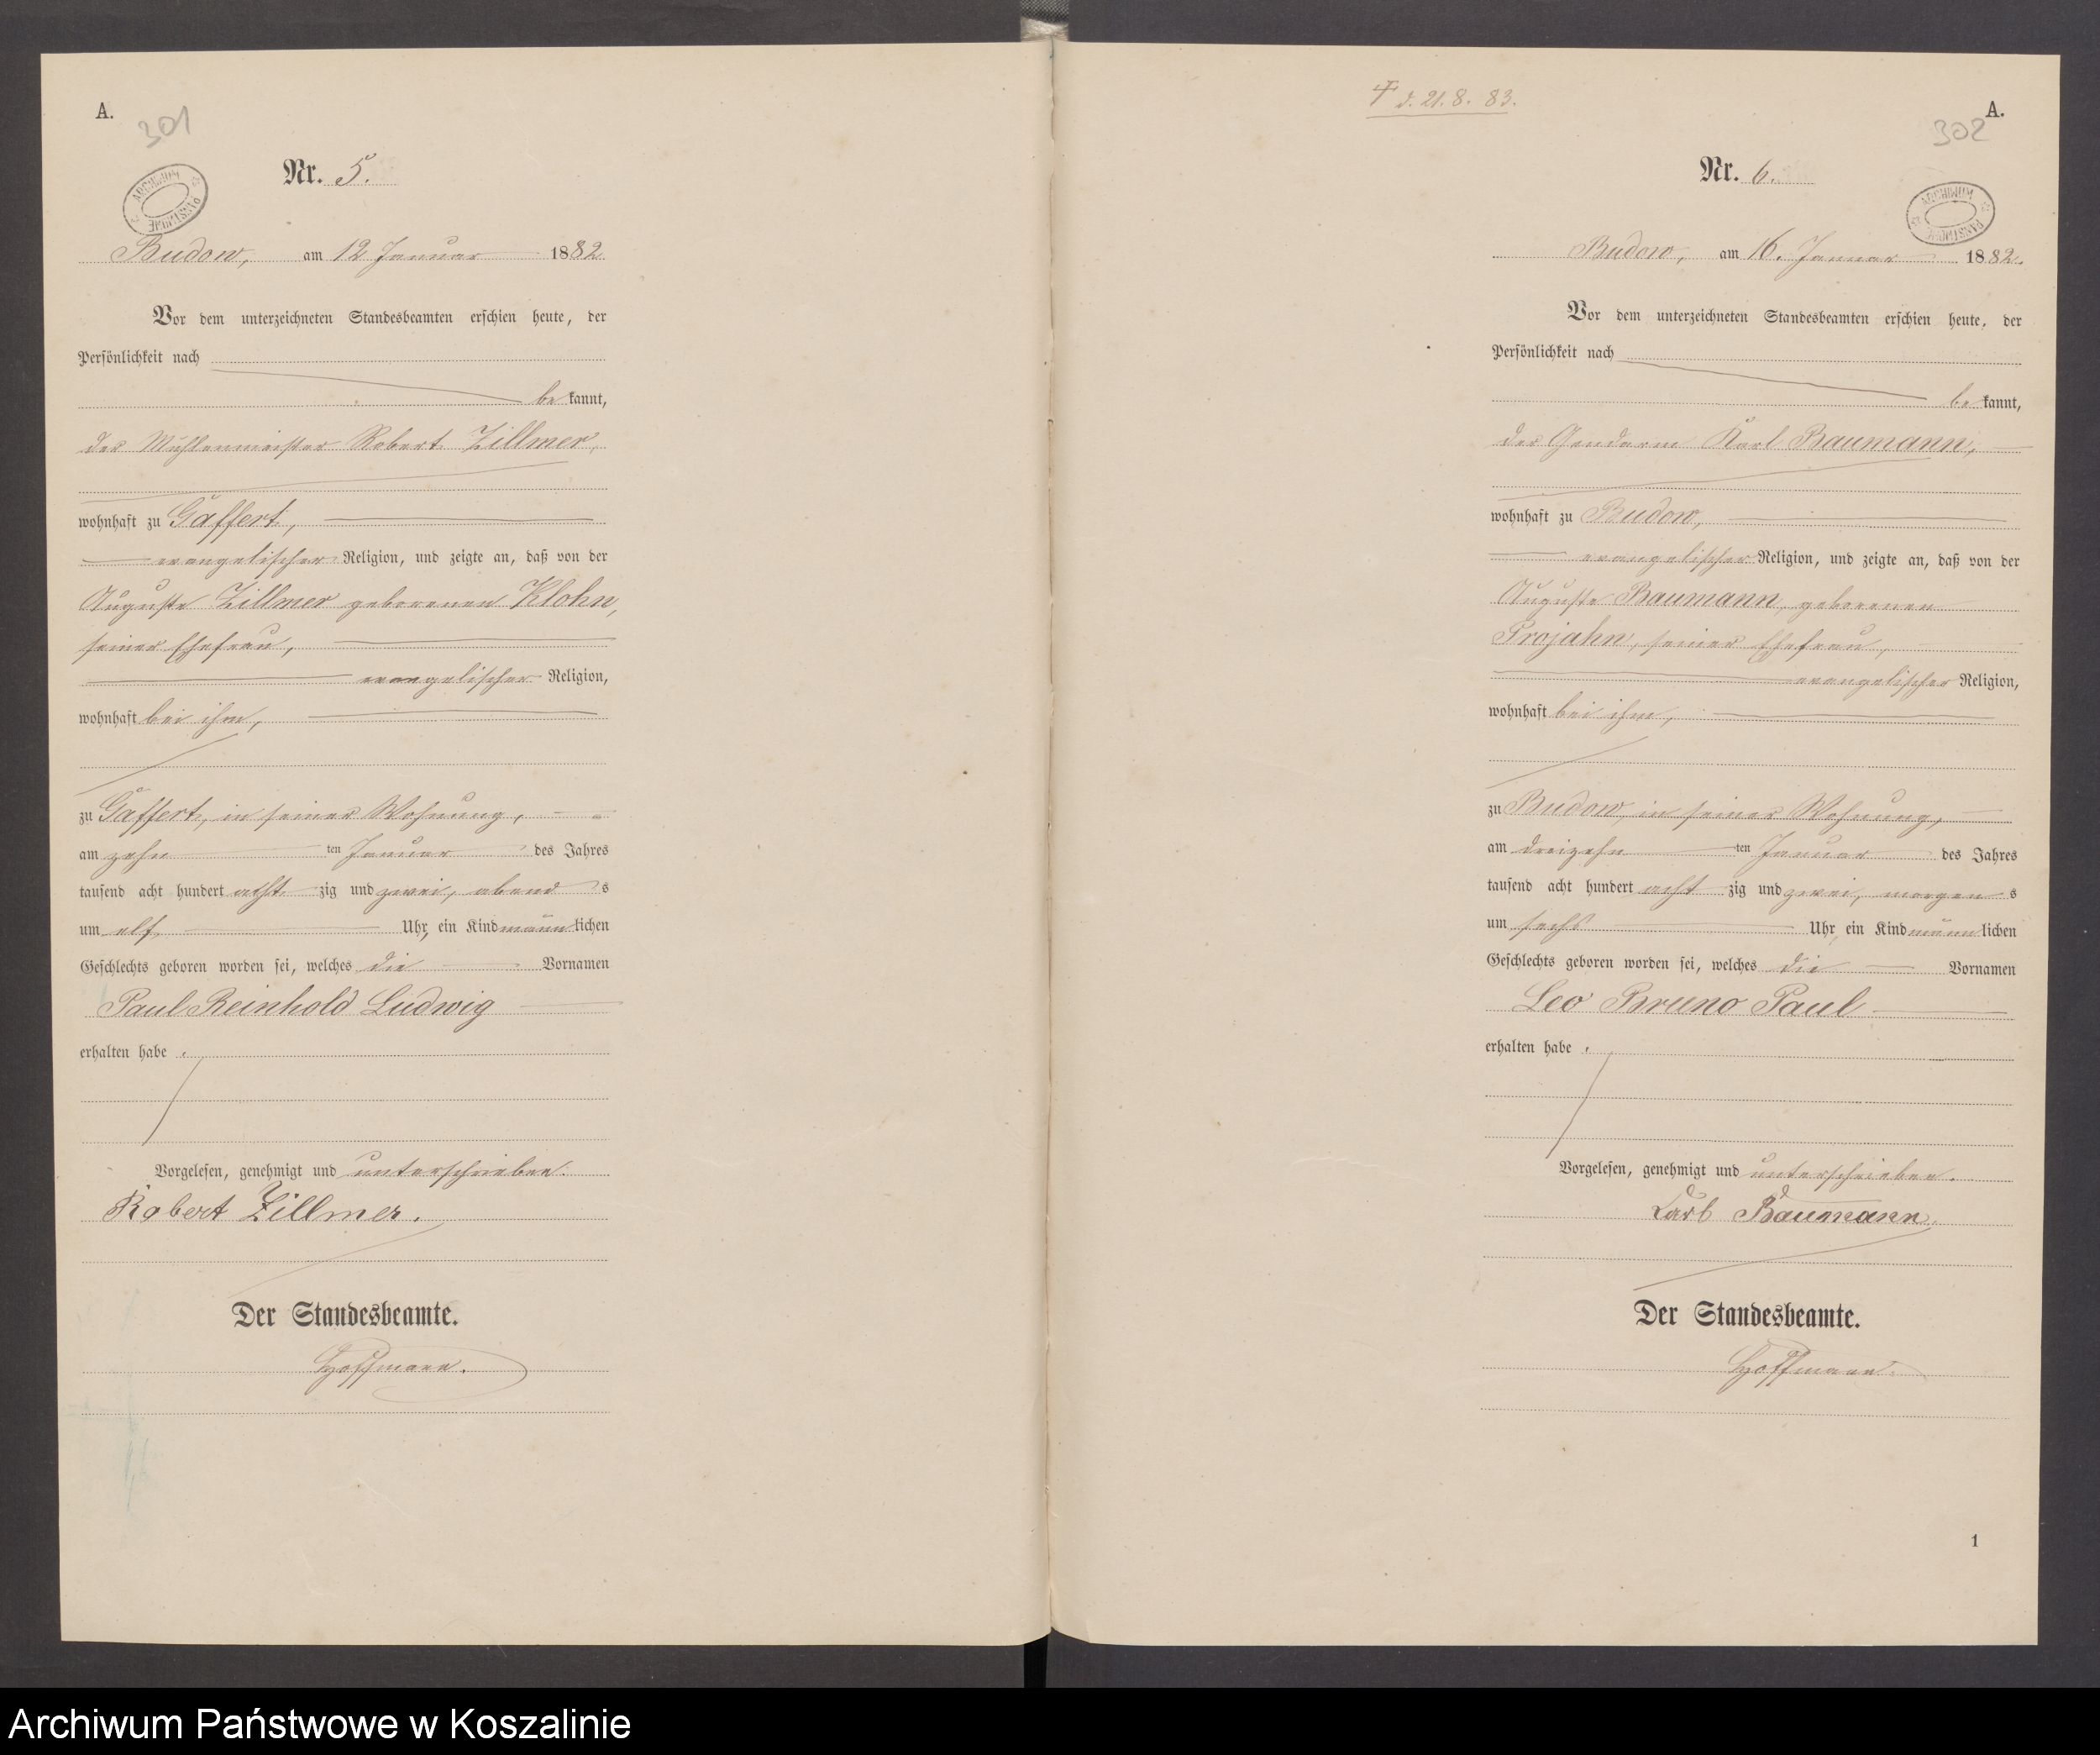 A.
301
Nr. 5.
ARCHIWUM PAŃSTWOWE
Budow, am 12 Januar 1882.
Vor dem unterzeichneten Standesbeamten erschien heute, der
Persönlichkeit nach
be kannt,
der Mühlenmeister Robert Zillmer,
wohnhaft zu Gaffert,
evangelischer Religion, und zeigte an, daß von der
Auguste Zillmer geborenen Klohn,
seiner Ehefrau,
evangelischer Religion,
wohnhaft bei ihm,
zu Gaffert, in seiner Wohnung,
am zehn ten Januar des Jahres
tausend acht hundert acht zig und zwei, abend s
um elf Uhr, ein Kind männ lichen
Geschlechts geboren worden sei, welches die Vornamen
Paul Reinhold Ludwig
erhalten habe.
Vorgelesen, genehmigt und unterschrieben.
Robert Zillmer.
Der Standesbeamte.
Hoffmann.
† d. 21. 8. 83.
A.
302
Nr. 6.
ARCHIWUM PAŃSTWOWE
Budow, am 16. Januar 1882.
Vor dem unterzeichneten Standesbeamten erschien heute, der
Persönlichkeit nach
be kannt,
der Gendarm Karl Baumann,
wohnhaft zu Budow,
evangelischer Religion, und zeigte an, daß von der
Auguste Baumann, geborenen
Projahn, seiner Ehefrau,
evangelischer Religion,
wohnhaft bei ihm,
zu Budow, in seiner Wohnung,
am dreizehn ten Januar des Jahres
tausend acht hundert acht zig und zwei, morgen s
um sechs Uhr, ein Kind männ lichen
Geschlechts geboren worden sei, welches die Vornamen
Leo Bruno Paul
erhalten habe.
Vorgelesen, genehmigt und unterschrieben.
Karl Baumann.
Der Standesbeamte.
Hoffmann.
1
Archiwum Państwowe w Koszalinie